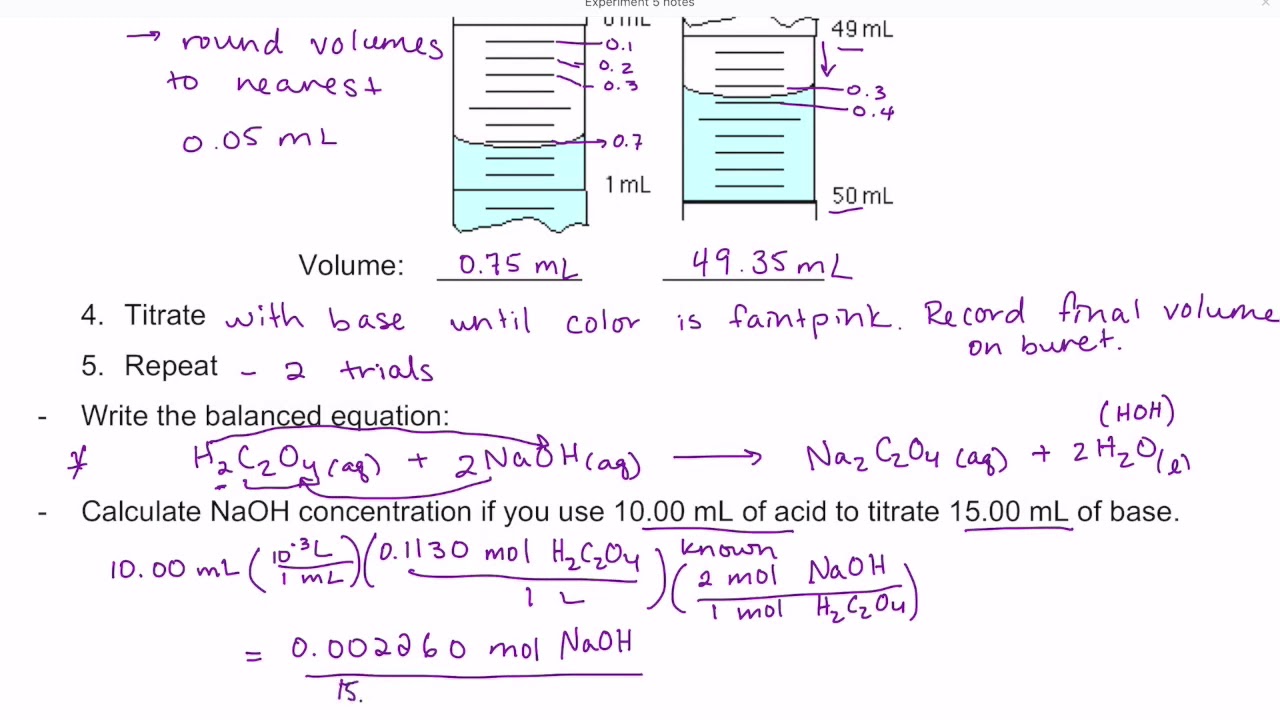 Experiment 5 notes
→ round volumes
to nearest
0.05 mL
0 mL
0.1
0.2
0.3
0.7
1 mL
49 mL
0.3
0.4
50 mL
Volume: 0.75 mL 49.35 mL
4. Titrate with base until color is faint pink. Record final volume
on buret.
5. Repeat - 2 trials
- Write the balanced equation:
(HOH)
* H₂C₂O₄(aq) + 2NaOH(aq) → Na₂C₂O₄(aq) + 2H₂O(l)
- Calculate NaOH concentration if you use 10.00 mL of acid to titrate 15.00 mL of base.
known
10.00 mL (10⁻³L / 1 mL)(0.1130 mol H₂C₂O₄ / 1 L)(2 mol NaOH / 1 mol H₂C₂O₄)
= 0.002260 mol NaOH
15.